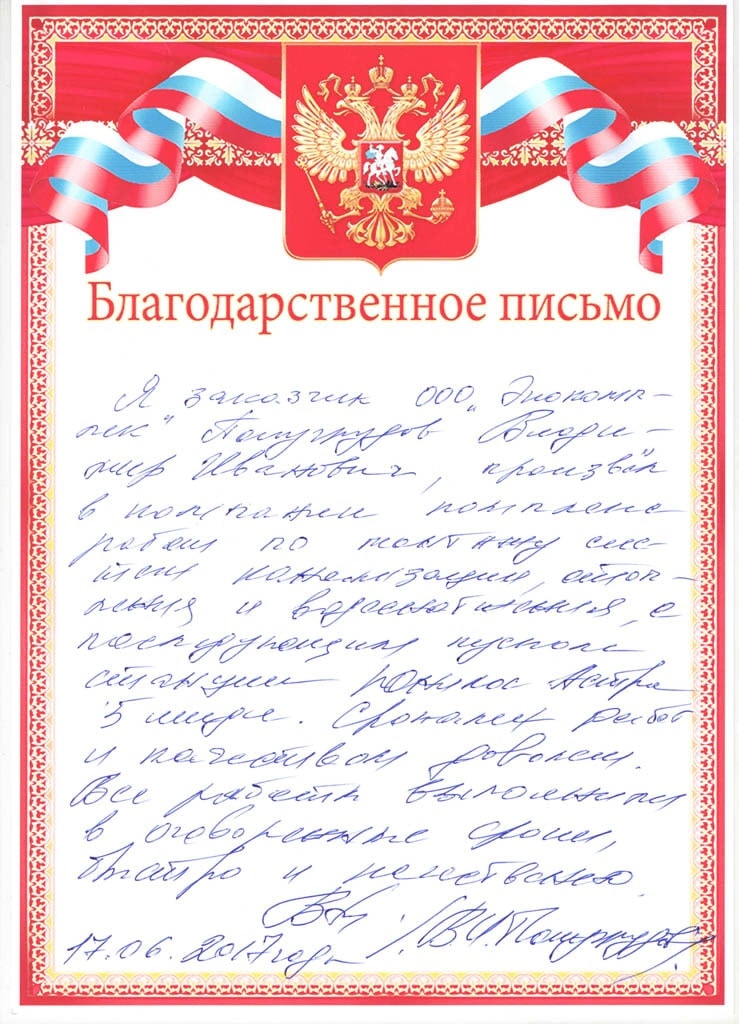 Благодарственное письмо
Я заказчик ООО „Экокомп-
лек" Владти-
мир Иванович, произвёл
в компании комплекс
работ по монтажу сис-
тем канализации, отоп-
ления и водоснабжения, с
последующим пуском
станции Юнилос Астра
5 миди. Сроками работ
и качеством доволен.
Все работы выполнили
в оговоренные сроки,
быстро и качественно.
17.06.2017 года